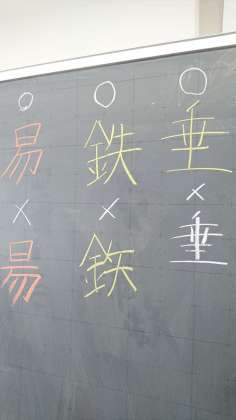 ○ ○ ○
易 鉄 垂
× × ×
昜 鉃 垂